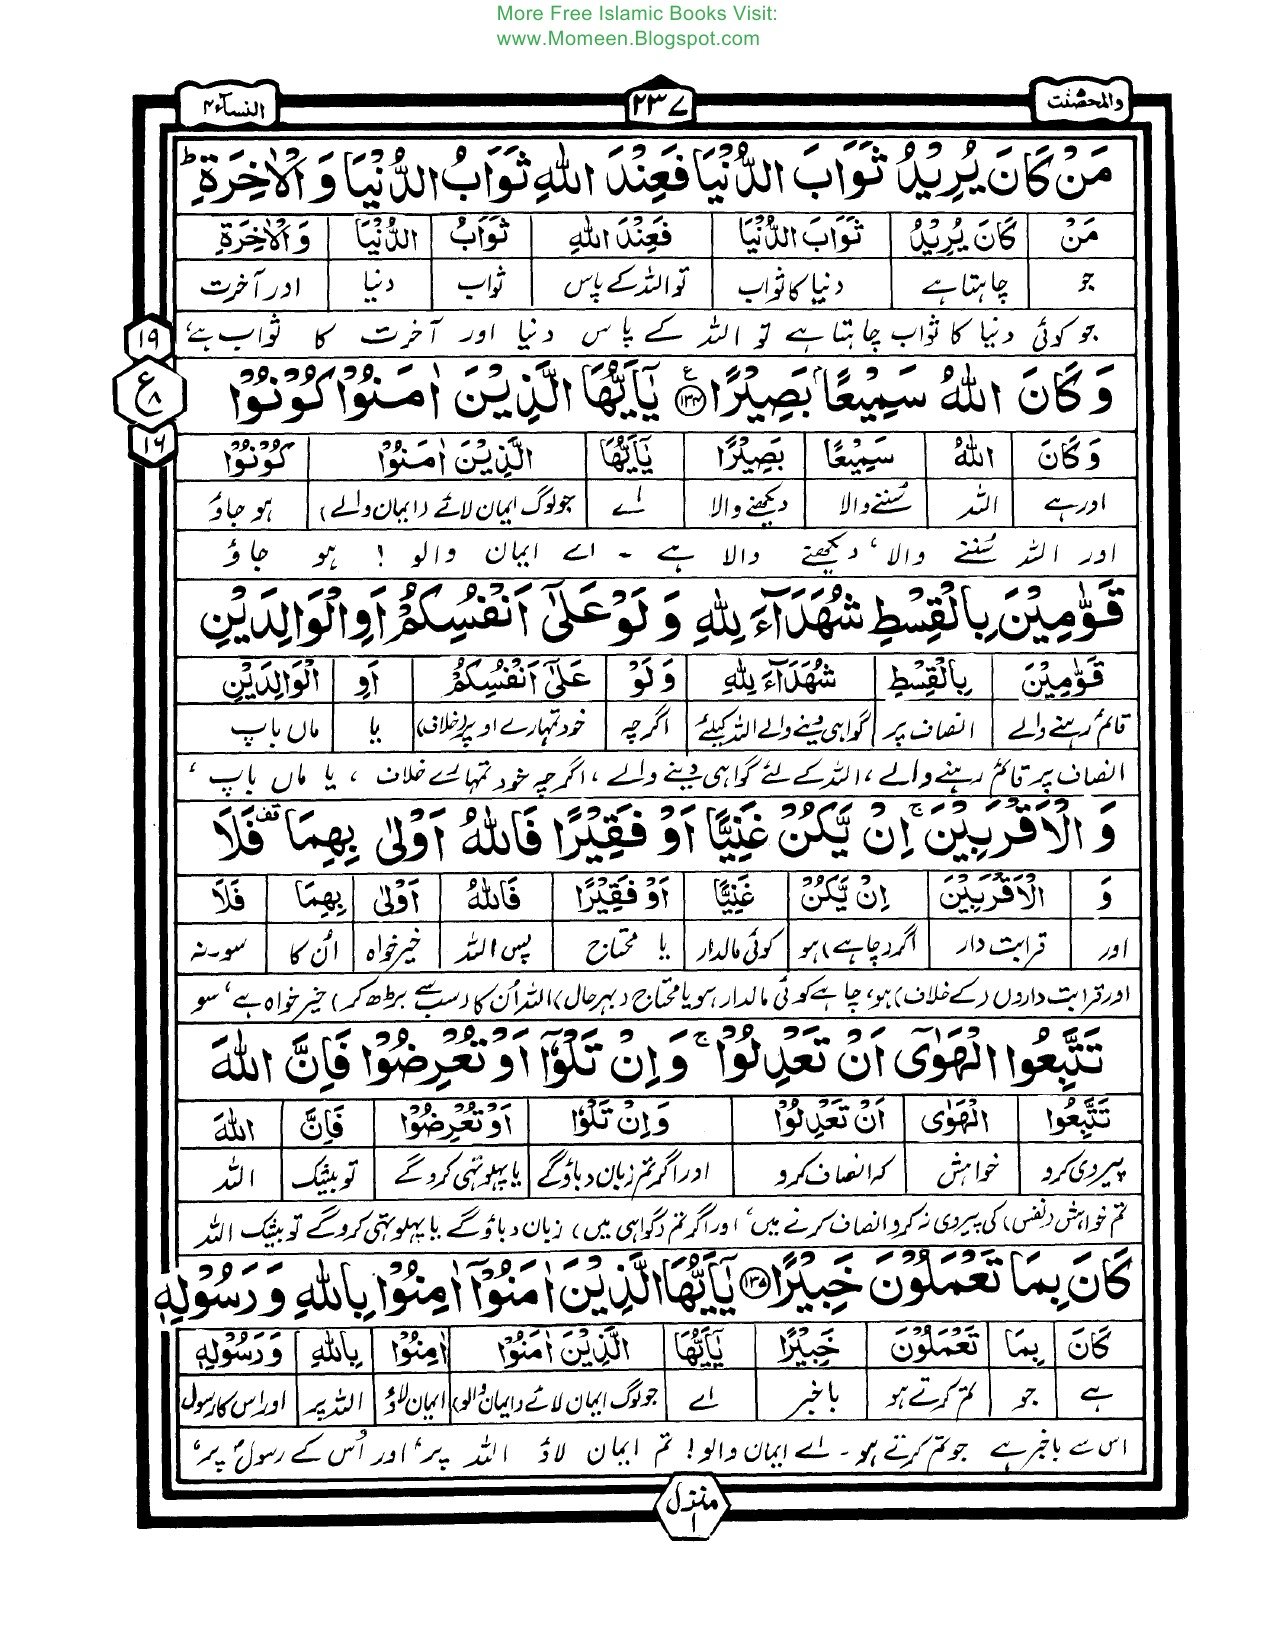 More Free Islamic Books Visit:
www.Momeen.Blogspot.com
والمحصنت ٢٣٧ النسآء ٤
مَنْ كَانَ يُرِيْدُ ثَوَابَ الدُّنْيَا فَعِنْدَ اللّٰهِ ثَوَابُ الدُّنْيَا وَ الْاٰخِرَةِ ؕ
مَنْ كَانَ يُرِيْدُ ثَوَابَ الدُّنْيَا فَعِنْدَ اللّٰهِ ثَوَابُ الدُّنْيَا وَ الْاٰخِرَةِ
جو چاہتا ہے دنیا کا ثواب تو اللہ کے پاس ثواب دنیا اور آخرت
جو کوئی دنیا کا ثواب چاہتا ہے تو اللہ کے پاس دنیا اور آخرت کا ثواب ہے،
١٩
ع ٨
١٦
وَ كَانَ اللّٰهُ سَمِيْعًۢا بَصِيْرًا ع ١٣٤ يٰۤاَيُّهَا الَّذِيْنَ اٰمَنُوْا كُوْنُوْا
وَ كَانَ اللّٰهُ سَمِيْعًا بَصِيْرًا يٰۤاَيُّهَا الَّذِيْنَ اٰمَنُوْا كُوْنُوْا
اور ہے اللہ سُننے والا دیکھنے والا اے جو لوگ ایمان لائے (ایمان والے) ہو جاؤ
اور اللہ سُننے والا، دیکھنے والا ہے ۔ اے ایمان والو ! ہو جاؤ
قَوّٰمِيْنَ بِالْقِسْطِ شُهَدَآءَ لِلّٰهِ وَ لَوْ عَلٰۤى اَنْفُسِكُمْ اَوِ الْوَالِدَيْنِ
قَوّٰمِيْنَ بِالْقِسْطِ شُهَدَآءَ لِلّٰهِ وَ لَوْ عَلٰۤى اَنْفُسِكُمْ اَوِ الْوَالِدَيْنِ
قائم رہنے والے انصاف پر گواہی دینے والے اللہ کیلئے اگرچہ خود تمہارے اوپر (خلاف) یا ماں باپ
انصاف پر قائم رہنے والے، اللہ کے لئے گواہی دینے والے، اگرچہ خود تمہارے خلاف ، یا ماں باپ ،
وَ الْاَقْرَبِيْنَ ۚ اِنْ يَّكُنْ غَنِيًّا اَوْ فَقِيْرًا فَاللّٰهُ اَوْلٰى بِهِمَا قف فَلَا
وَ الْاَقْرَبِيْنَ اِنْ يَّكُنْ غَنِيًّا اَوْ فَقِيْرًا فَاللّٰهُ اَوْلٰى بِهِمَا فَلَا
اور قرابت دار اگر (چاہے) ہو کوئی مالدار یا محتاج پس اللہ خیر خواہ اُن کا سو۔ نہ
اور قرابت داروں (کے خلاف) ہو، چاہے کوئی مالدار ہو یا محتاج (بہرحال) اللہ اُن کا (سب سے بڑھ کر) خیر خواہ ہے، سو
تَتَّبِعُوا الْهَوٰۤى اَنْ تَعْدِلُوْا ۚ وَ اِنْ تَلْوٗۤا اَوْ تُعْرِضُوْا فَاِنَّ اللّٰهَ
تَتَّبِعُوا الْهَوٰۤى اَنْ تَعْدِلُوْا وَ اِنْ تَلْوٗا اَوْ تُعْرِضُوْا فَاِنَّ اللّٰهَ
پیروی کرو خواہش کہ انصاف کرو اور اگر تم زبان دباؤ گے یا پہلو تہی کرو گے تو بیشک اللہ
تم خواہش (نفس) کی پیروی نہ کرو انصاف کرنے میں، اور اگر تم (گواہی میں) زبان دباؤ گے یا پہلو تہی کرو گے تو بیشک اللہ
كَانَ بِمَا تَعْمَلُوْنَ خَبِيْرًا ١٣٥ يٰۤاَيُّهَا الَّذِيْنَ اٰمَنُوْۤا اٰمِنُوْا بِاللّٰهِ وَ رَسُوْلِهٖ
كَانَ بِمَا تَعْمَلُوْنَ خَبِيْرًا يٰۤاَيُّهَا الَّذِيْنَ اٰمَنُوْا اٰمِنُوْا بِاللّٰهِ وَ رَسُوْلِهٖ
ہے جو تم کرتے ہو باخبر اے جو لوگ ایمان لائے (ایمان والو) ایمان لاؤ اللہ پر اور اس کا رسول
اس سے باخبر ہے جو تم کرتے ہو ۔ اے ایمان والو! تم ایمان لاؤ اللہ پر، اور اُس کے رسولؐ پر،
منزل ١